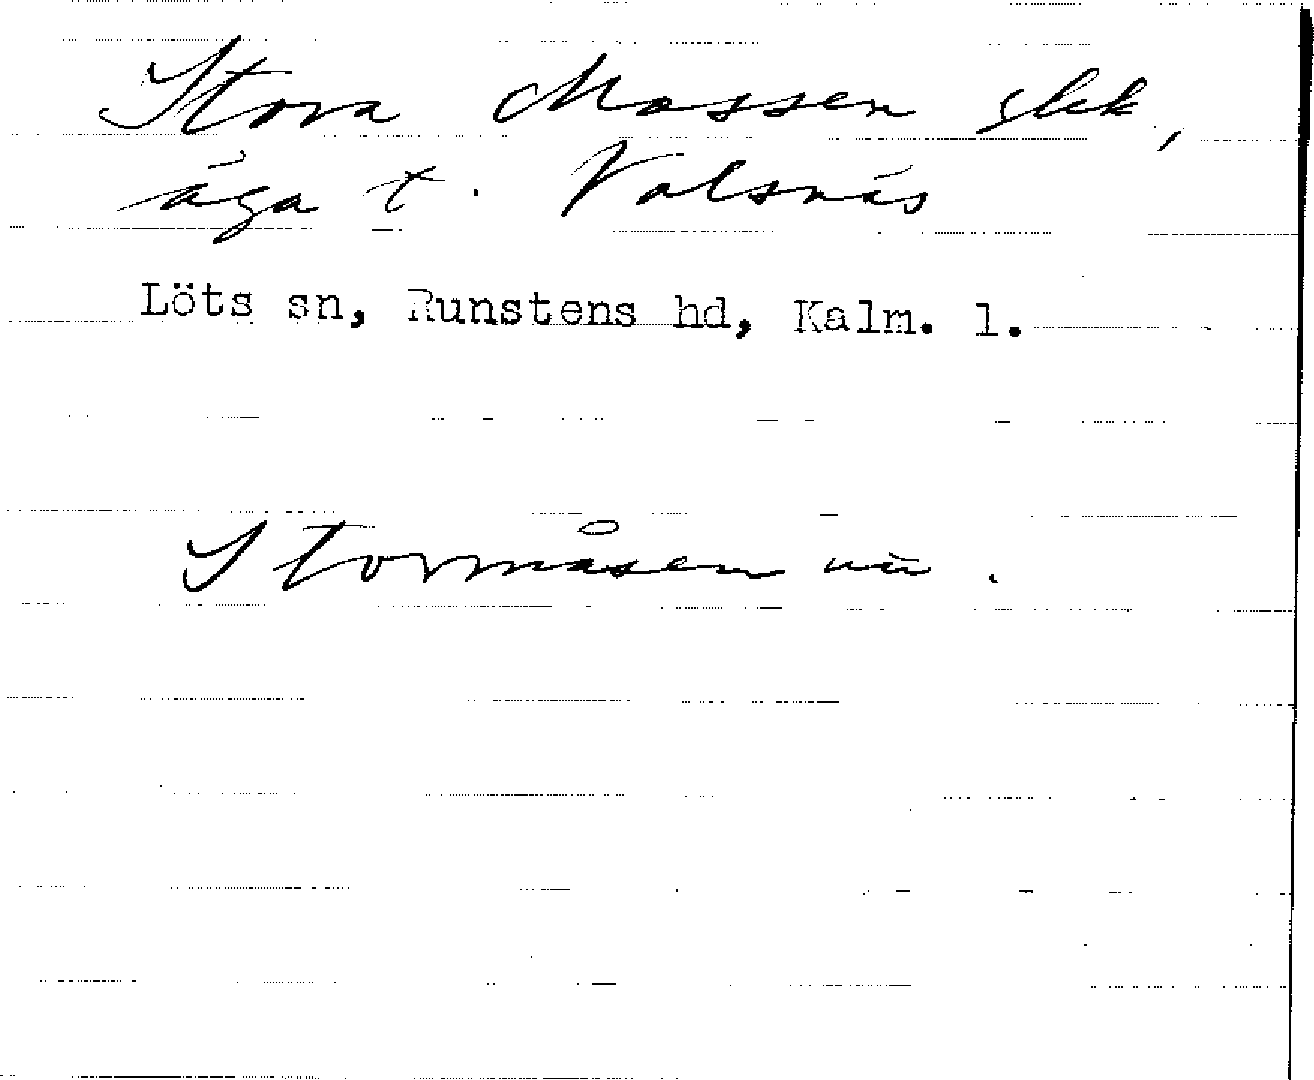 Stora Mossen skk,
äga t. Valsnäs
Löts sn, Runstens hd, Kalm. l.
Stormåsen nu.